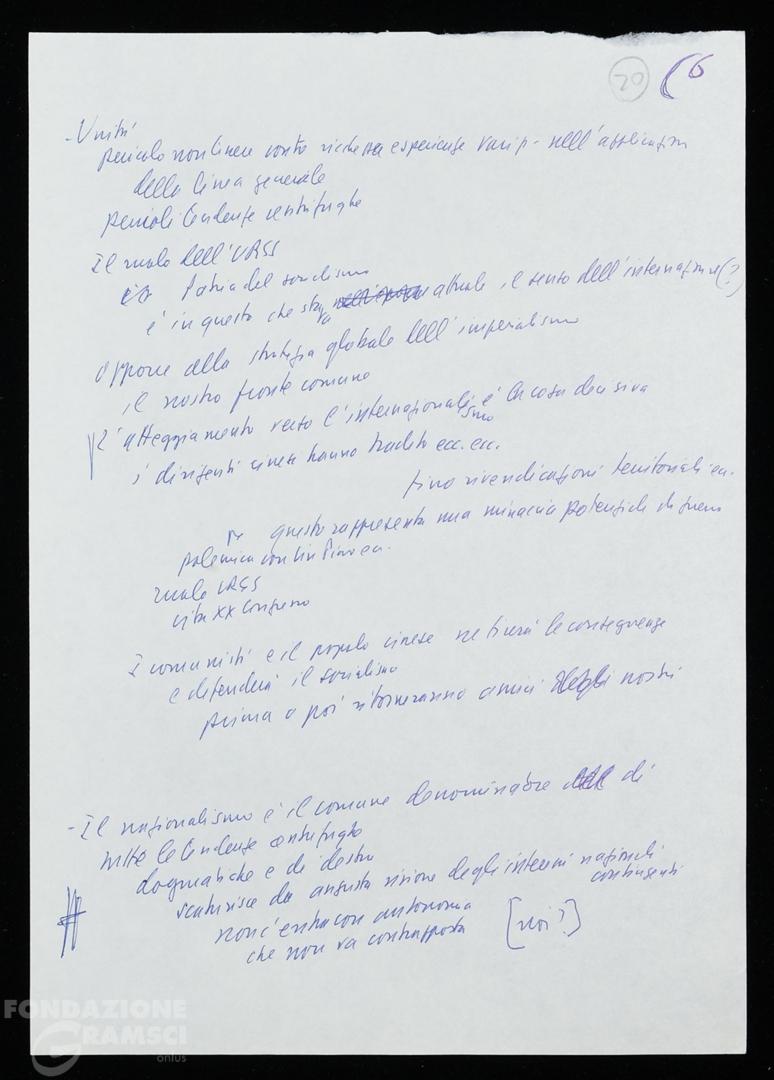 20 6
- Unità
pericolo non tener conto ricchezza esperienze vari p. nell'applicazion
della linea generale
pericoli tendenze centrifughe
Il ruolo dell'URSS
Patria del socialismo
è in questo che sta attuale, il senso dell'internazional (?)
oppone alla strategia globale dell'imperialismo
il nostro fronte comune
L'atteggiamento verso l'internazionalismo è la cosa decisiva
i dirigenti cinesi hanno tradito ecc. ecc.
fino rivendicazioni territoriali ecc.
questo rappresenta una minaccia potenziale di guerra
polemica con Lin Piao ecc.
ruolo URSS
cita XX Congresso
I comunisti e il popolo cinese ne tirerà le conseguenze
e difenderà il socialismo
prima o poi ritorneranno amici nostri
- Il nazionalismo è il comune denominatore di
tutte le tendenze centrifughe
dogmatiche e di destra
scaturisce da angusta visione degli interessi nazionali
contingenti
non c'entra con autonomia
che non va contrapposta [noi?]
FONDAZIONE
GRAMSCI
onlus